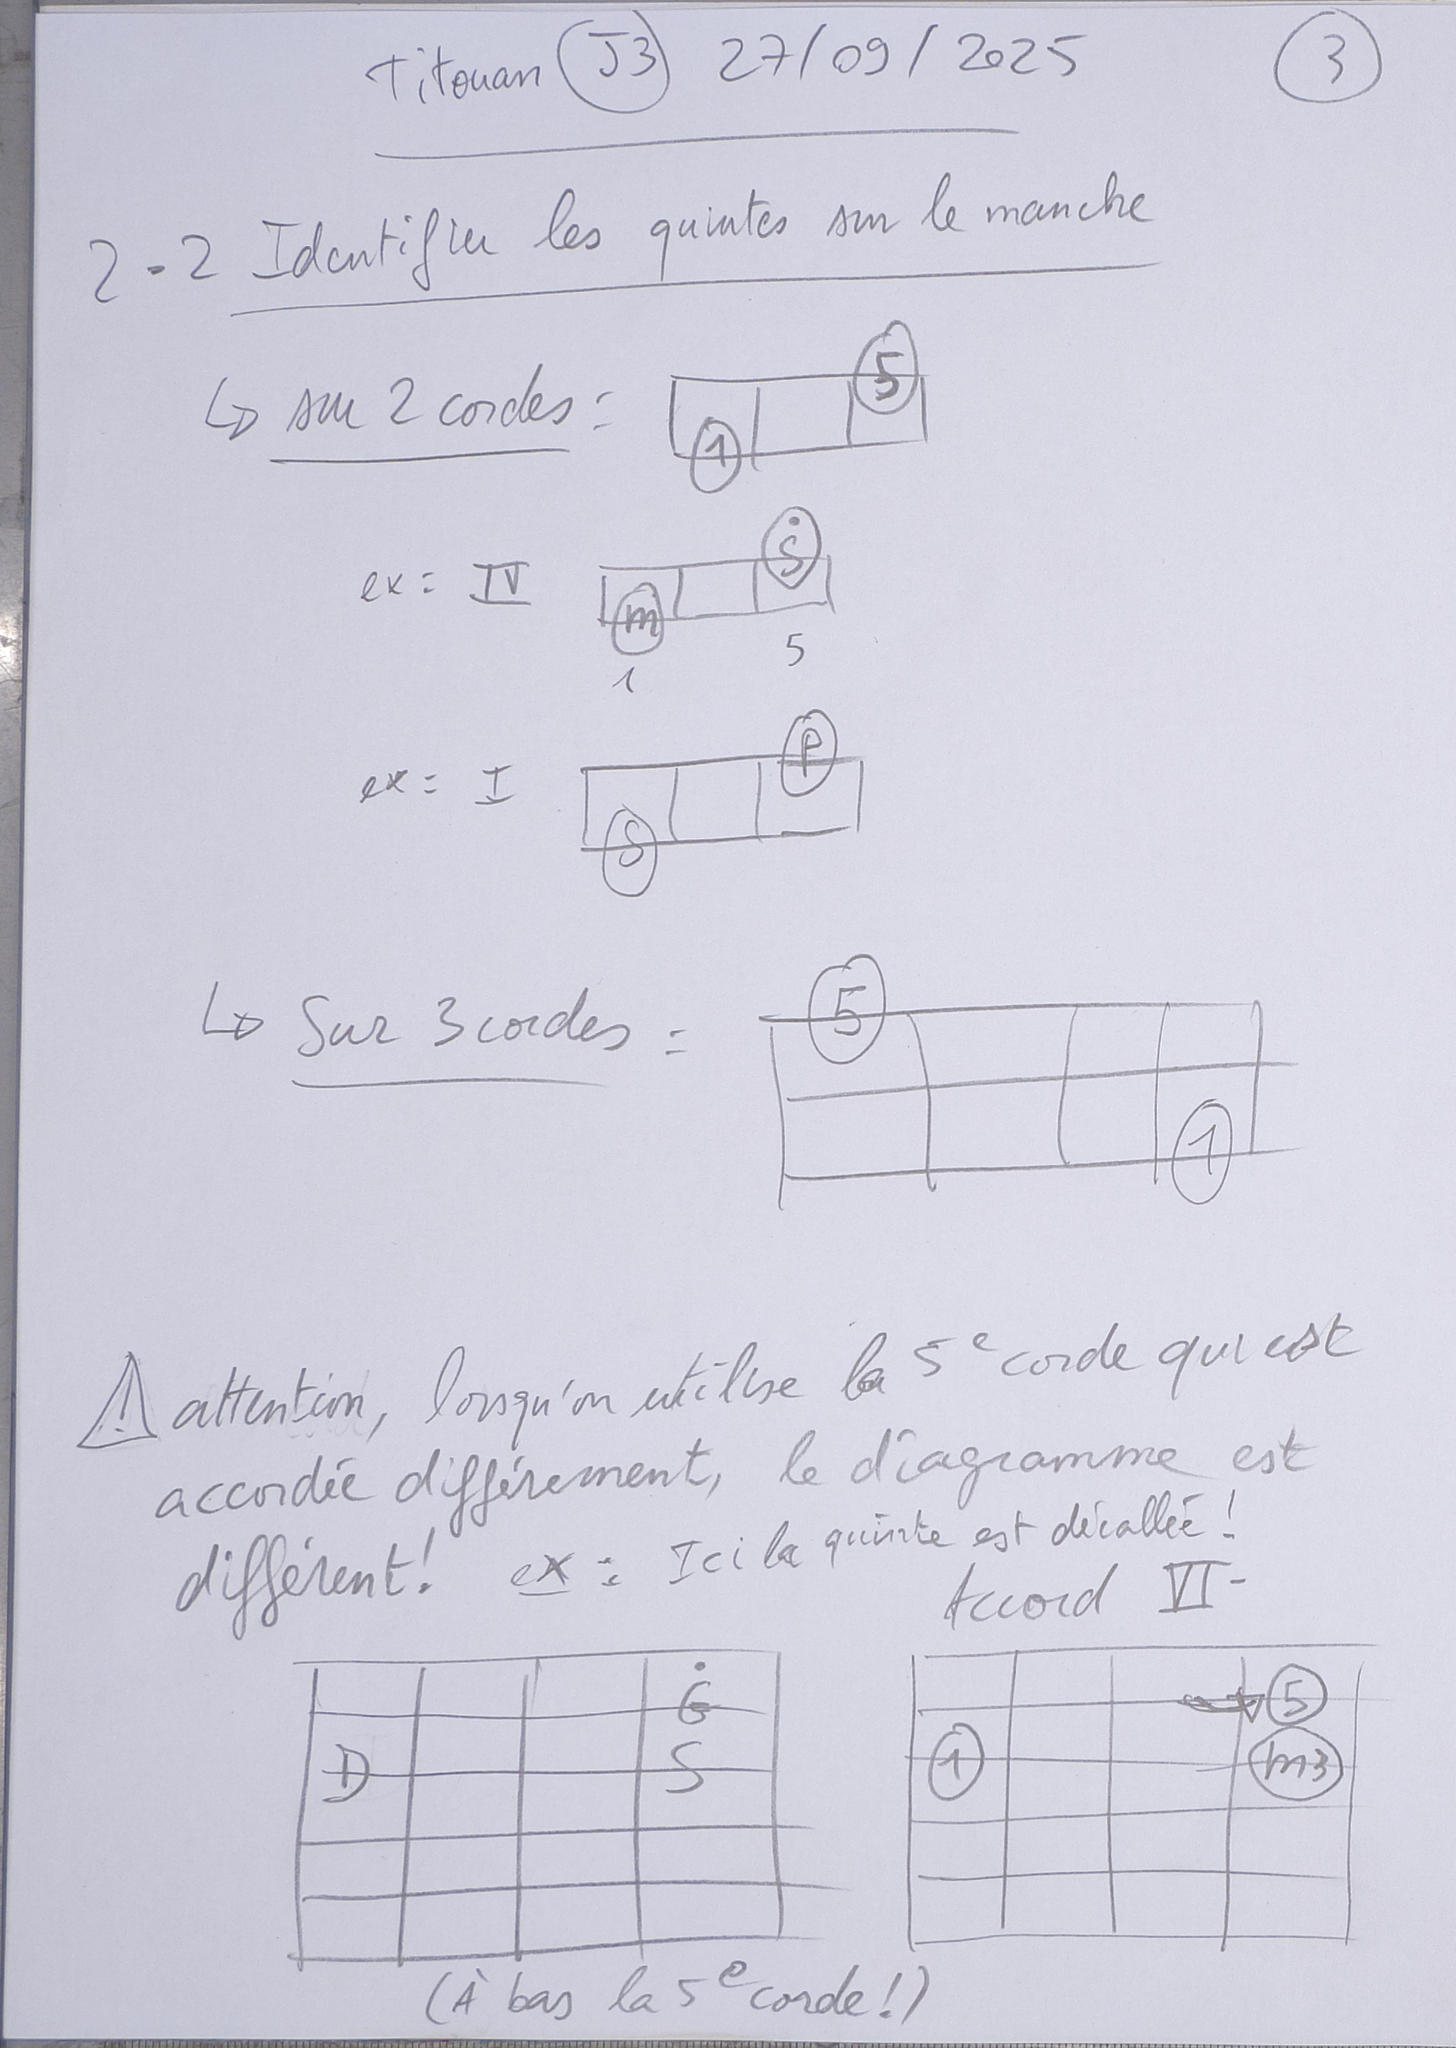 Titouan J3 27/09/2025 3
2-2 Identifier les quintes sur le manche
↳ sur 2 cordes =
5
1
ex = IV
Ṡ
m
1 5
ex = I
P
S
↳ Sur 3 cordes =
5
1
⚠ attention, lorsqu'on utilise la 5e corde qui est
accordée différement, le diagramme est
différent! ex = Ici la quinte est décallée!
Accord VI-
Ġ
D S
5
1 m3
(À bas la 5e corde!)